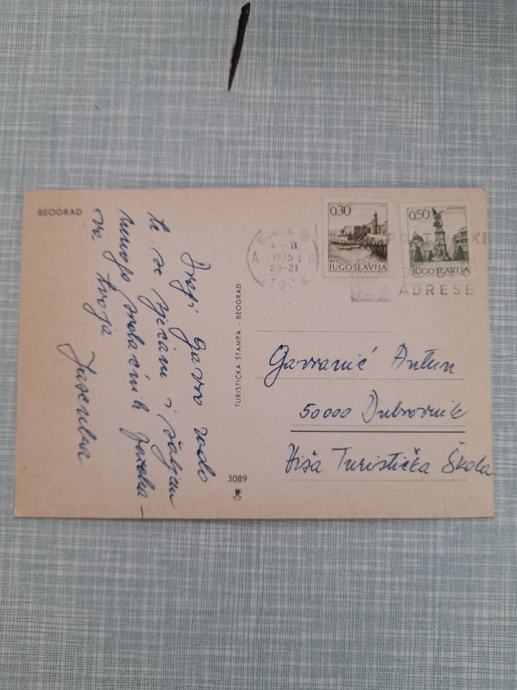 BEOGRAD
Dragi Gavro rado
te se sjećam i šaljem
mnogo srdačnih pozdra-
va tvoja
Jasenka
TURISTIČKA ŠTAMPA - BEOGRAD
3089
0,30
JUGOSLAVIJA
0,50
JUGOSLAVIJA
1975
20-21
ADRESE
Gavranić Antun
50000 Dubrovnik
Viša Turistička Škola